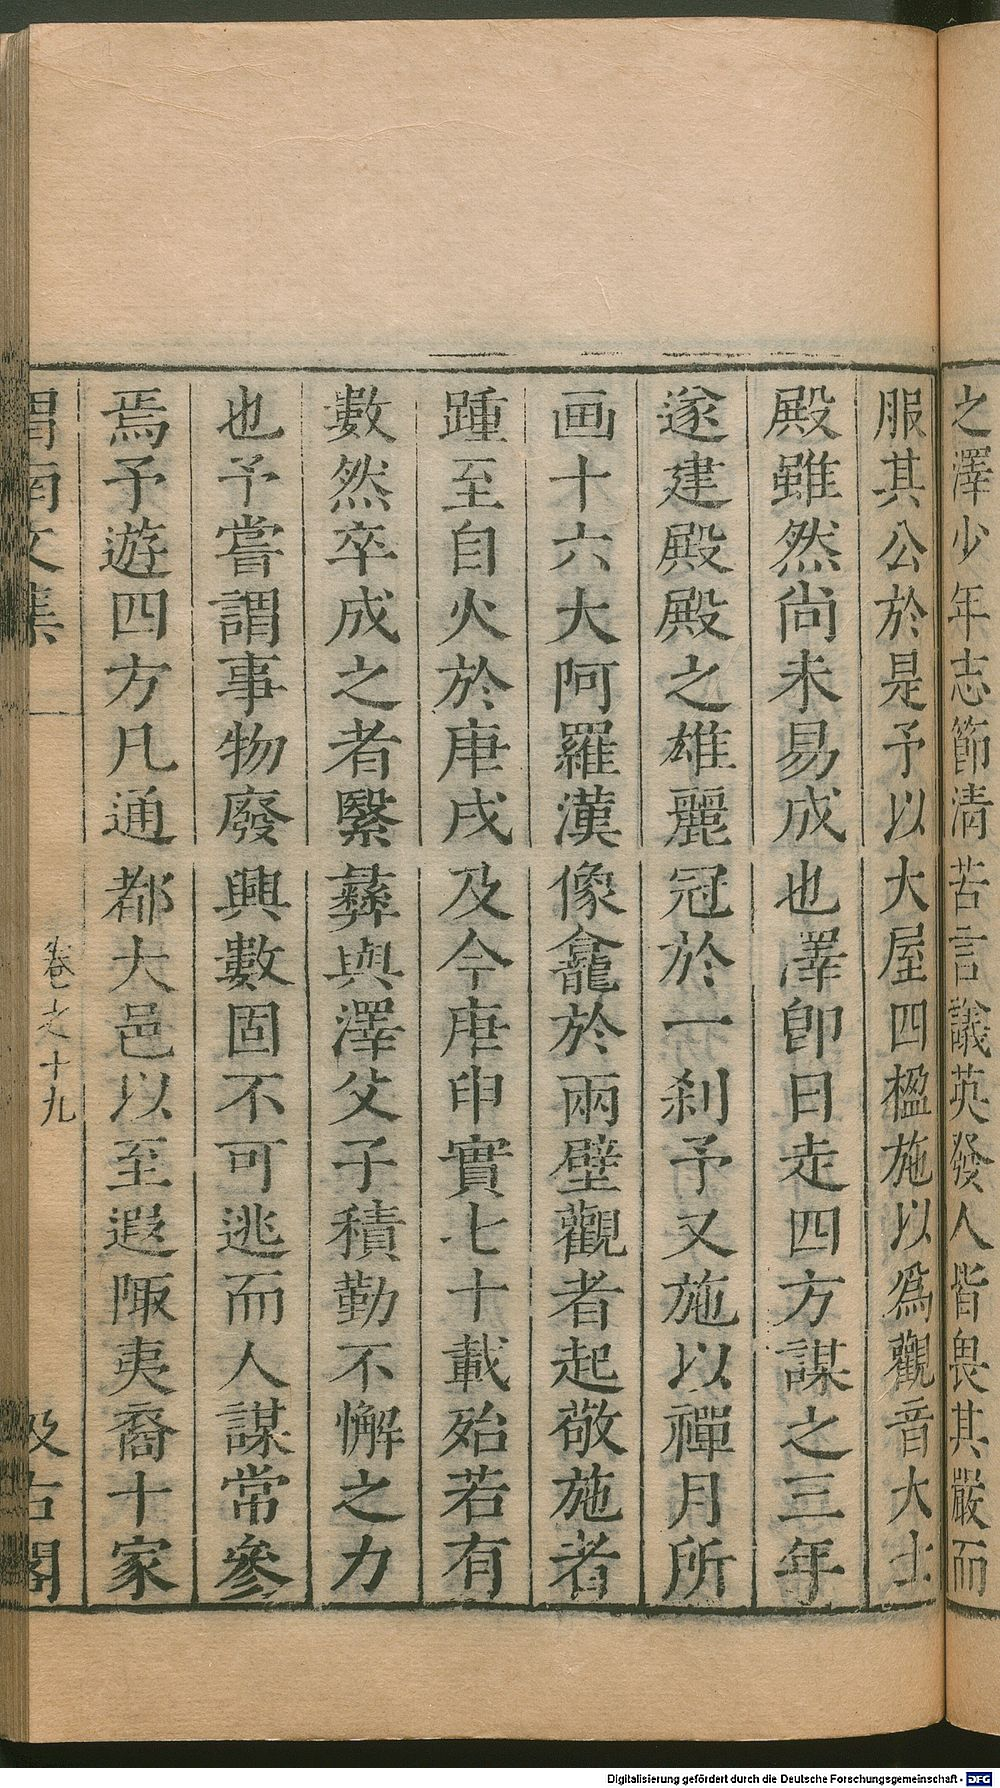 之澤少年志節清苦言議英發人皆畏其嚴而
服其公於是予以大屋四楹施以爲觀音大士
殿雖然尚未易成也澤卽日走四方謀之三年
遂建殿殿之雄麗冠於一刹予又施以禪月所
画十六大阿羅漢像龕於兩壁觀者起敬施者
踵至自火於庚戌及今庚申實七十載殆若有
數然卒成之者繄彝與澤父子積勤不懈之力
也予嘗謂事物廢興數固不可逃而人謀常參
焉予遊四方凡通都大邑以至遐陬夷裔十家
渭南文集 卷之十九 汲古閣
Digitalisierung gefördert durch die Deutsche Forschungsgemeinschaft - DFG